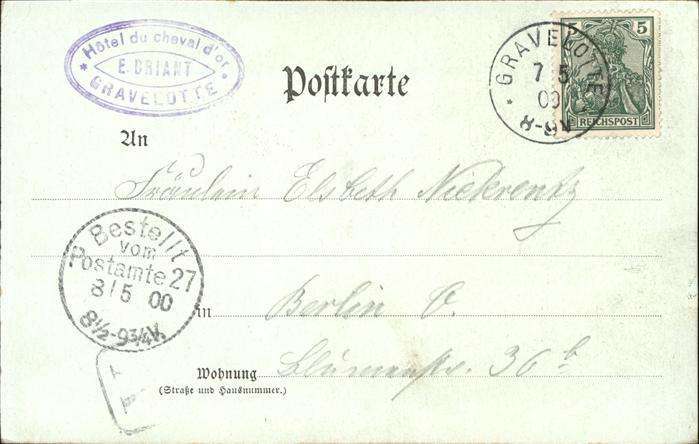 * Hôtel du cheval d'or *
E. DRIANT
GRAVELOTTE
Postkarte
* GRAVELOTTE
7 5
00
5 5
REICHSPOST
An
Fräulein Elsbeth Niekrentz
Bestellt
vom
Postamte 27
8/5 00
8½-9¾V.
in Berlin O.
Wohnung Blumenstr. 36 b
(Straße und Hausnummer.)